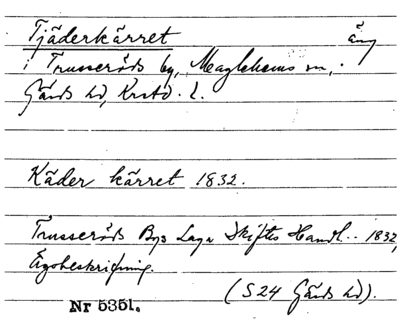 Tjäderkärret äng
i Trusseröds by, Maglehems sn,
Gärds hd, Krstd. l.
Käder kärret 1832.
Trusseröds Bys Laga Skiftes Handl.. 1832,
Egobeskrifning.
(S24 Gärds hd).
Nr 5351.